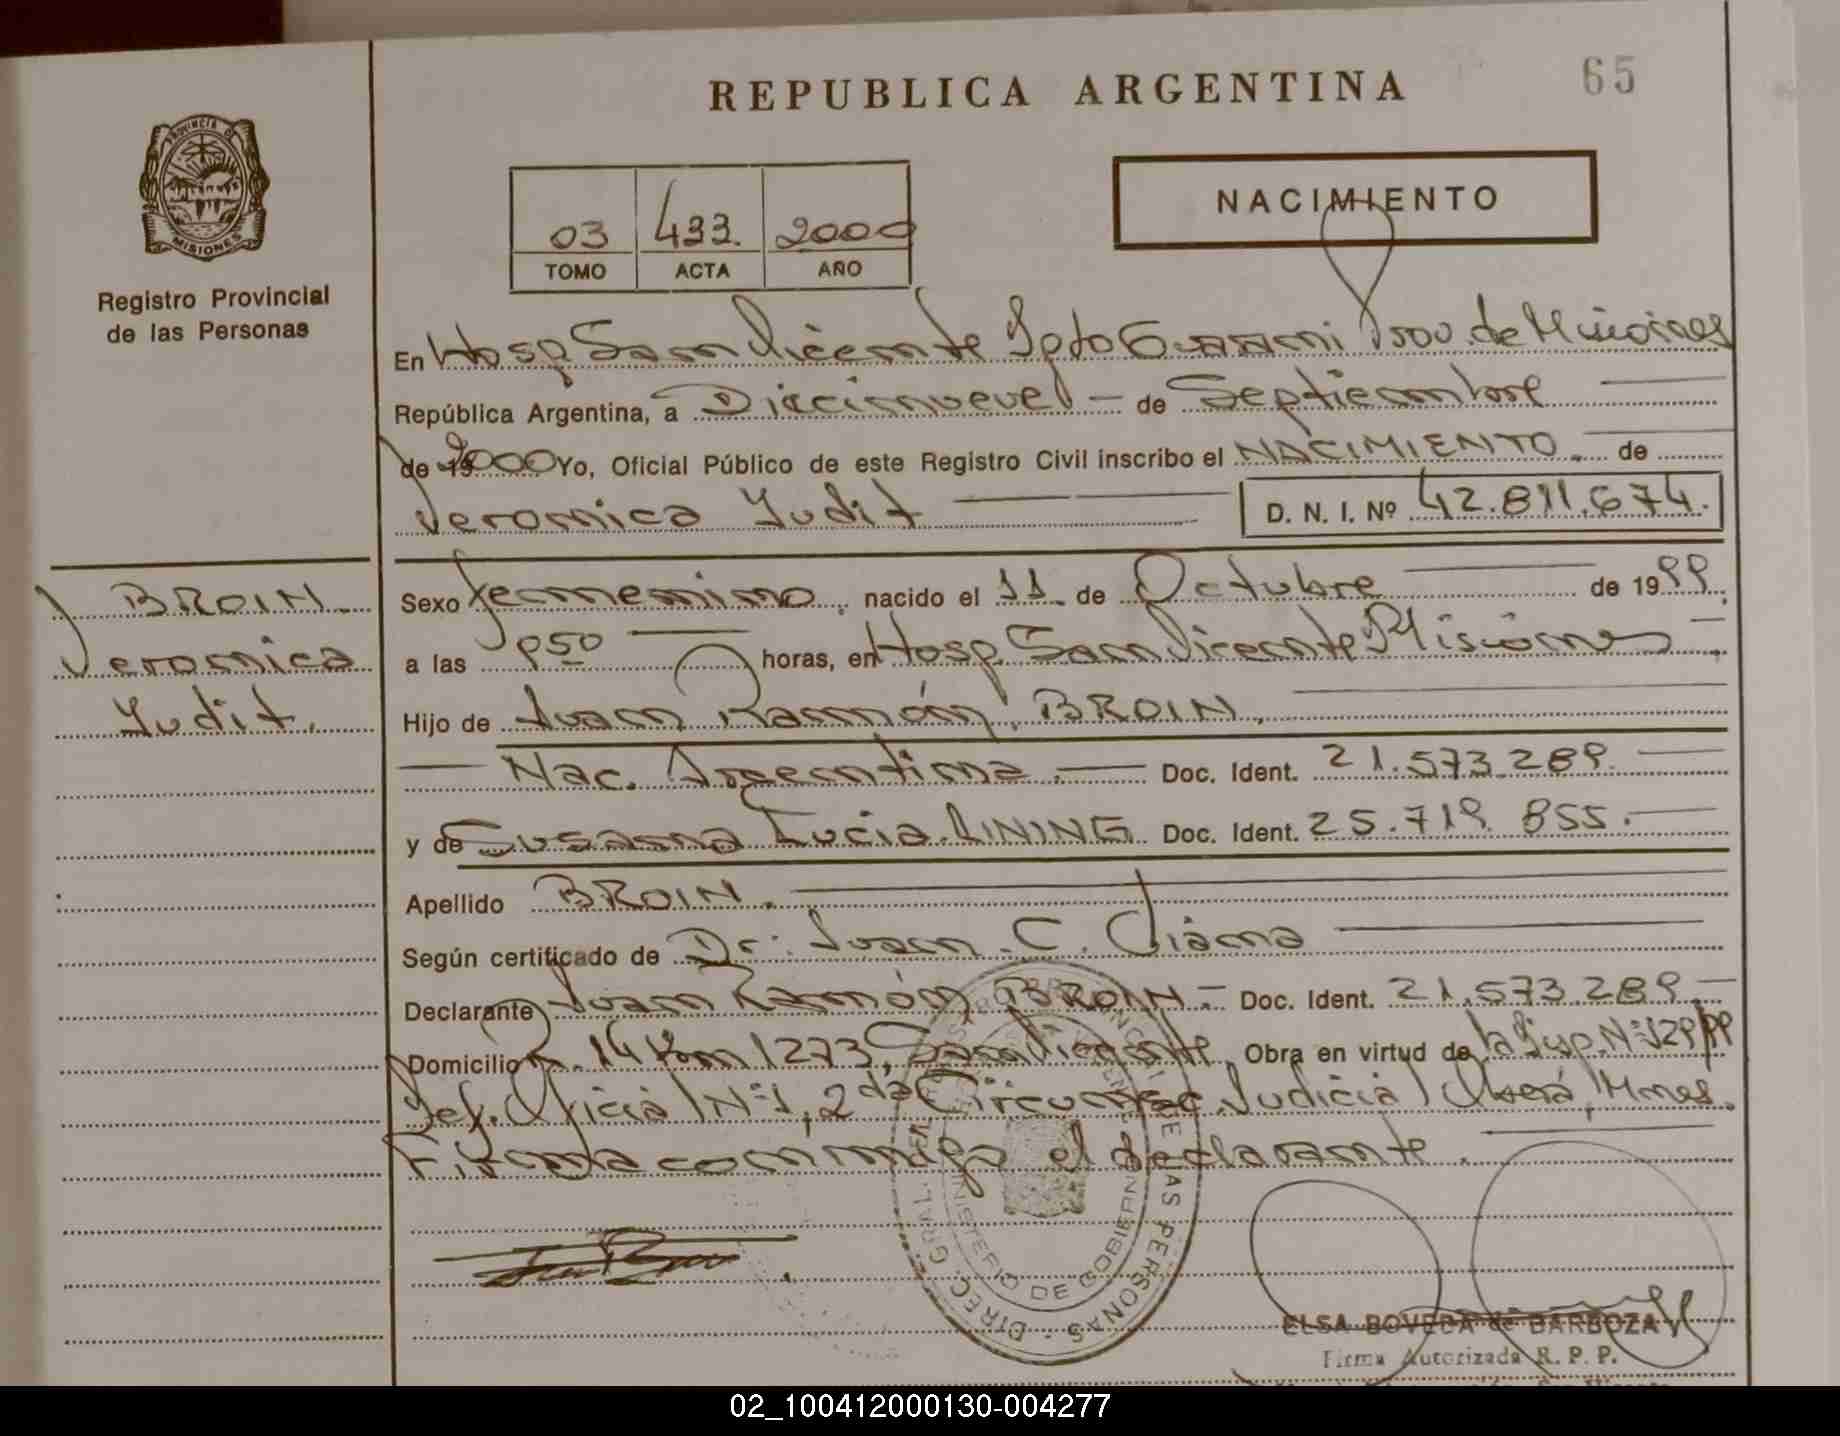 65
REPUBLICA ARGENTINA
PROVINCIA DE
MISIONES
Registro Provincial
de las Personas
NACIMIENTO
03 433. 2000
TOMO ACTA AÑO
En Hosp San Vicente Dpto Guarani Prov. de Misiones
República Argentina, a Diecinueve - de Septiembre
de 19 2000 Yo, Oficial Público de este Registro Civil inscribo el NACIMIENTO. de
Veronica Yudit D. N. I. Nº 42.811.674.
BROIN.
Veronica
Yudit.
Sexo femenino, nacido el 11 de Octubre de 1999.
a las horas, en Hosp. San Vicente Misiones
Hijo de Juan Ramón BROIN.
Nac. Argentina. Doc. Ident. 21.573.289.
y de Susana Lucia LINING Doc. Ident. 25.719.855.
Apellido BROIN.
Según certificado de Dr: Juan C.
Declarante Juan Ramón BROIN. Doc. Ident. 21.573.289.
Domicilio R. 14 Km 1273, San Vicente, Obra en virtud de la Disp. Nº 129/99
Def. Oficial Nº 1, 2da Circunsc. Judicial Oberá, Mnes.
Firma conmigo el declarante.
DIREC. GRAL. DE LAS PERSONAS
MINISTERIO DE GOBIERNO
ELSA BOVEDA de BARBOZA
Firma Autorizada R. P. P.
02_100412000130-004277